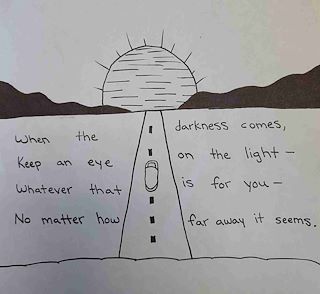 When the darkness comes,
Keep an eye on the light—
Whatever that is for you—
No matter how far away it seems.